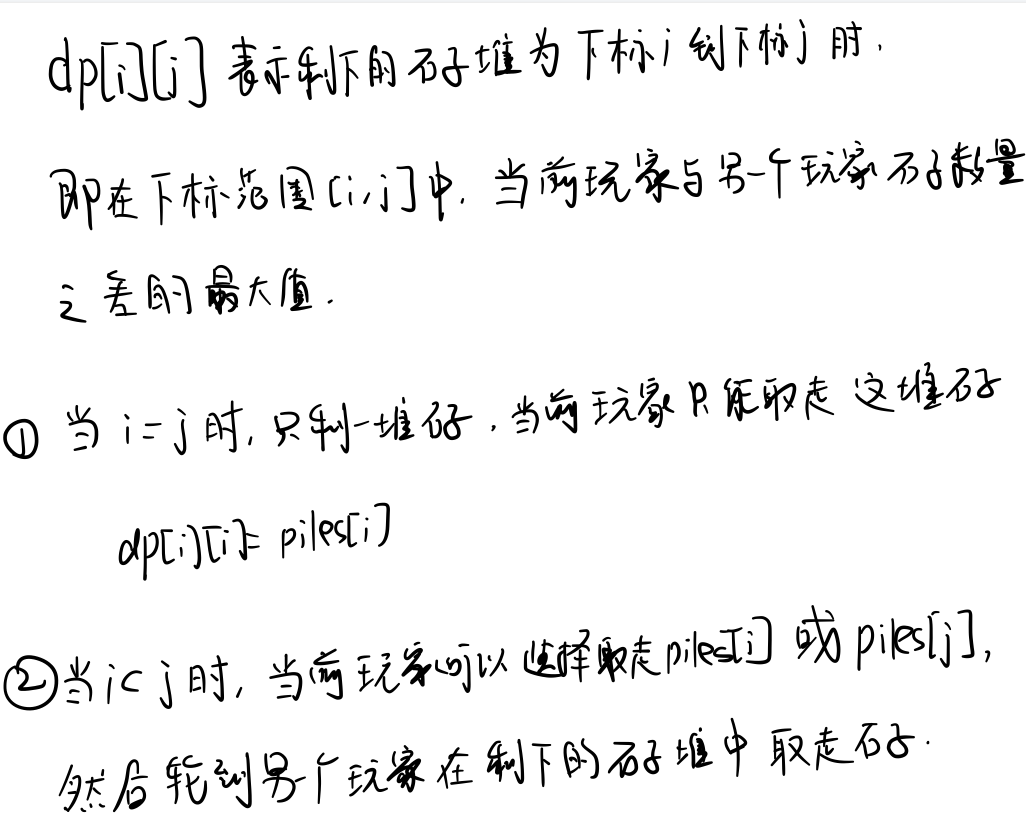 dp[i][j] 表示剩下的石子堆为下标i到下标j时,
即在下标范围[i,j]中,当前玩家与另一个玩家石子数量
之差的最大值.
① 当i=j时,只剩一堆石子,当前玩家只能取走这堆石子
dp[i][i]=piles[i]
② 当i<j时,当前玩家可以选择取走piles[i]或piles[j],
然后轮到另一个玩家在剩下的石子堆中取走石子.